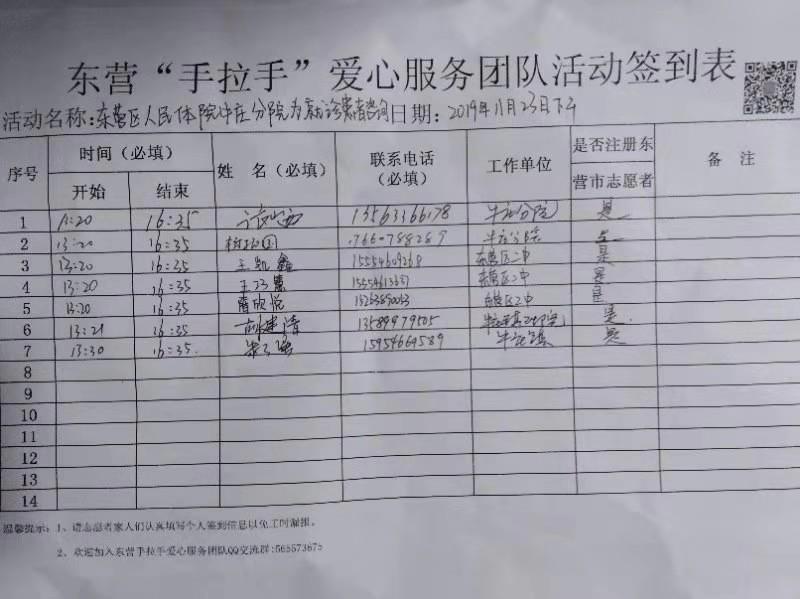 东营“手拉手”爱心服务团队活动签到表
活动名称:东营区人民医院牛庄分院为就诊患者咨询 日期:2019年11月23日下午
序号 时间（必填） 姓 名（必填） 联系电话（必填） 工作单位 是否注册东营市志愿者 备 注
开始 结束
1 16:35 13563366178 牛庄分院 是
2 13:20 16:35 牛庄分院 是
3 13:20 16:35 王凯鑫 15554609268 东营区二中 是
4 13:20 16:35 东营区二中 是
5 13:20 16:35 欣悦 东营区二中 是
6 13:21 16:35 13589979505 是
7 13:30 16:35 15954664589 牛庄镇 是
8
9
10
11
12
13
14
温馨提示：1、请志愿者家人们认真填写个人签到信息以免工时漏报。
2、欢迎加入东营手拉手爱心服务团队QQ交流群:565573675